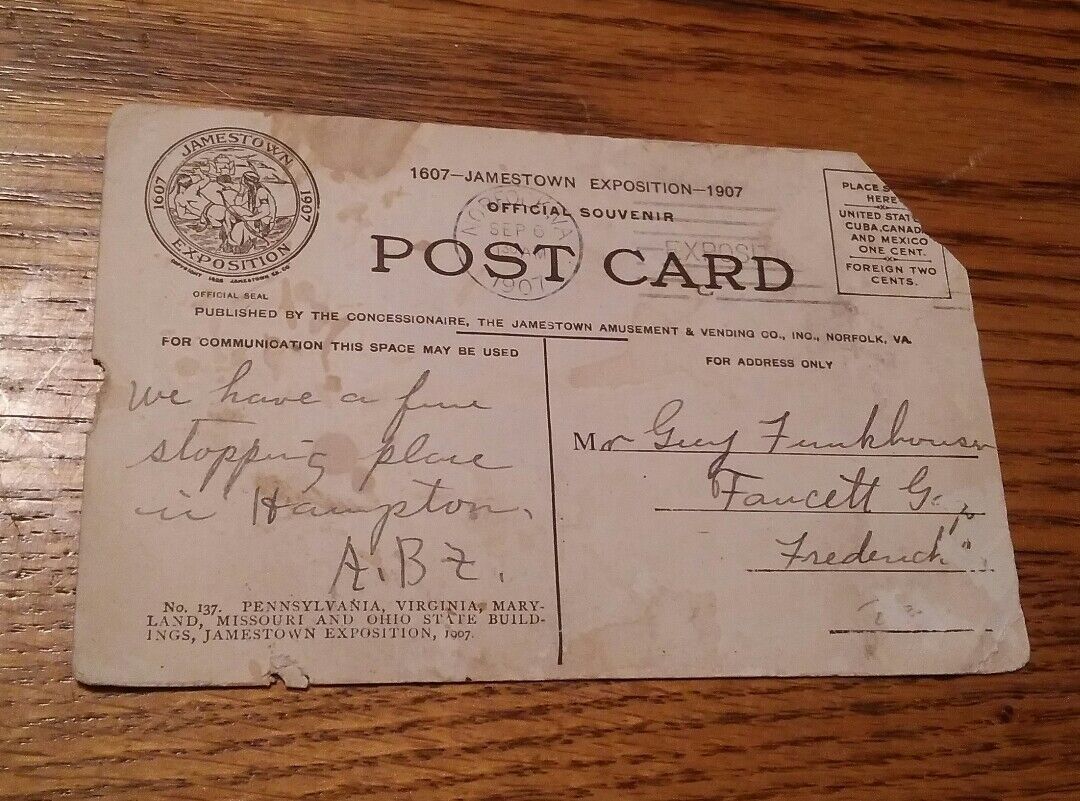 JAMESTOWN
1607 1907
EXPOSITION
OFFICIAL SEAL
1607—JAMESTOWN EXPOSITION—1907
OFFICIAL SOUVENIR
POST CARD
SEP 6
1907
EXPOSIT
PLACE S
HERE
UNITED STAT
CUBA, CANAD
AND MEXICO
ONE CENT.
FOREIGN TWO
CENTS.
PUBLISHED BY THE CONCESSIONAIRE, THE JAMESTOWN AMUSEMENT & VENDING CO., INC., NORFOLK, VA.
FOR COMMUNICATION THIS SPACE MAY BE USED
FOR ADDRESS ONLY
We have a fine
stopping place
in Hampton.
A. B Z.
Mr Guy Funkhouser
Faucett G
Frederick
No. 137. PENNSYLVANIA, VIRGINIA, MARY-
LAND, MISSOURI AND OHIO STATE BUILD-
INGS, JAMESTOWN EXPOSITION, 1907.